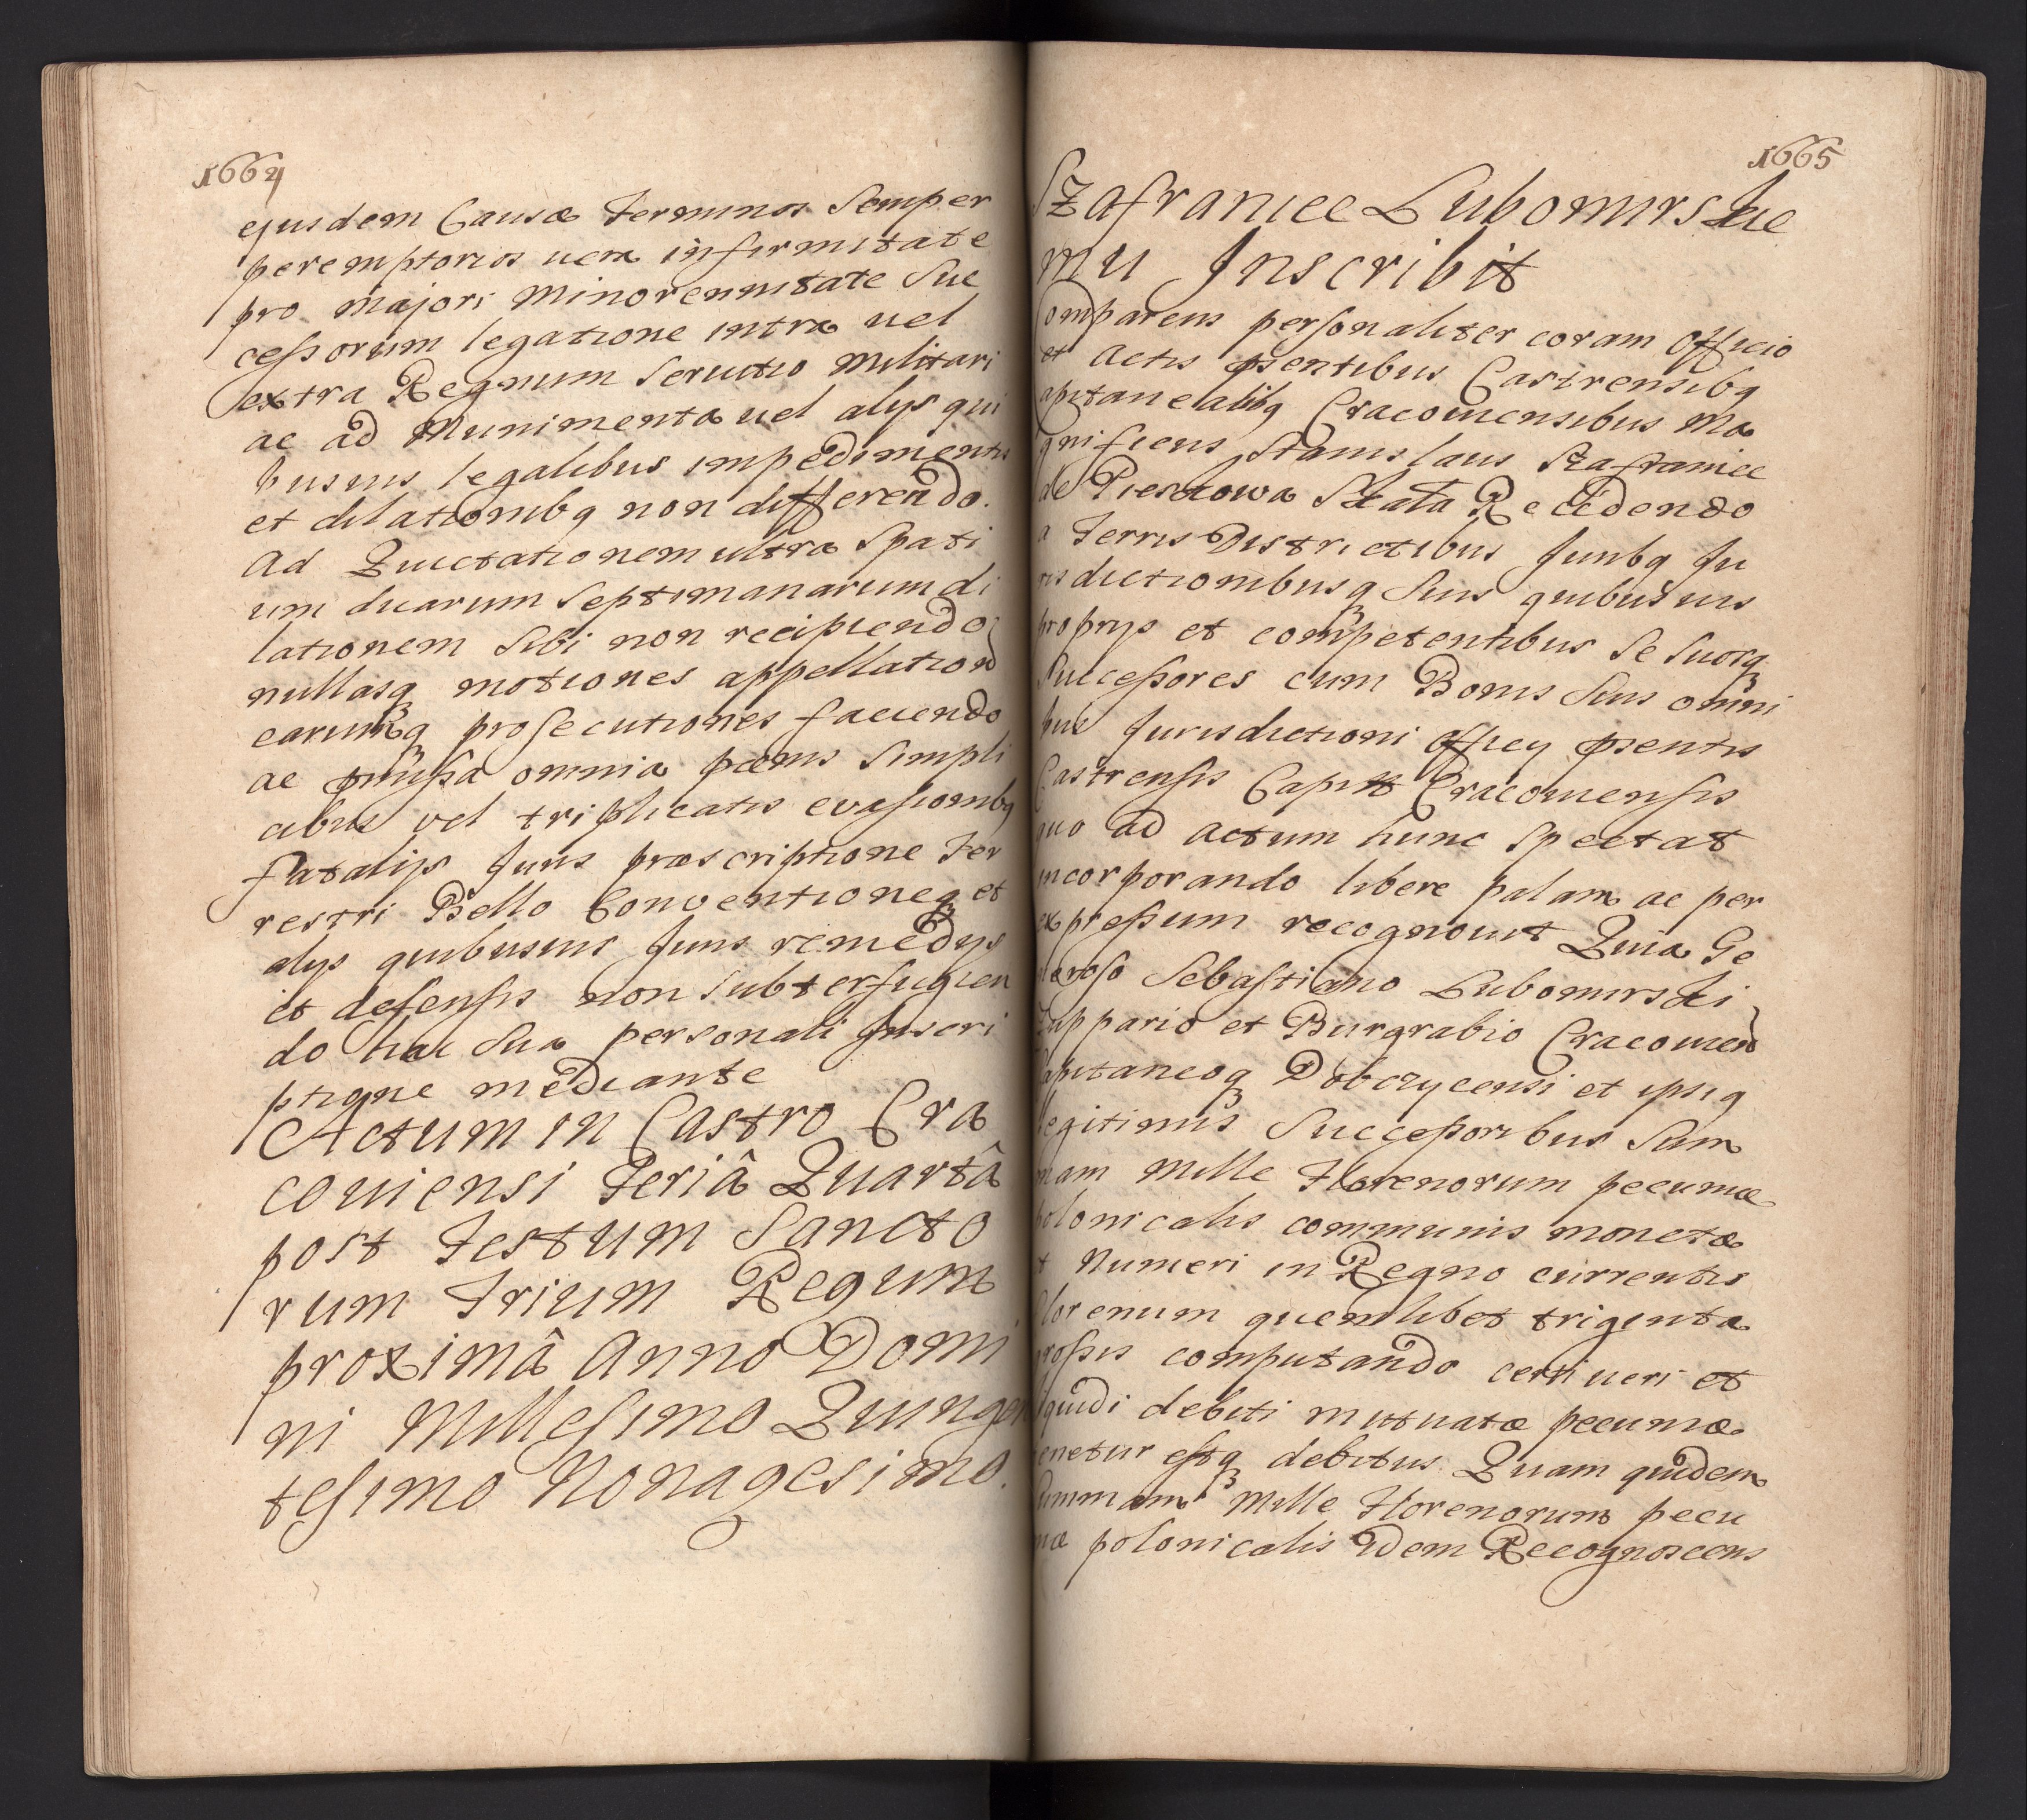 1664
ejusdem Causæ Terminos Semper
peremptorios vera infirmitate
pro majori Minorennitate Suc
cessorum legatione intra vel
extra Regnum Servitio Militari
ac ad Munimenta vel alys qui
busvis legalibus impedimentis
et dilationibq non differendo.
Ad Quietationem ultra Spati
um duarum Septimanarum di
lationem Sibi non recipiendo
nullasq motiones appellation
earumq prosecutiones faciendo
ac omnia pœnis Simpli
cibus vel triplicatis evasionibq
fatalijs Juris præscriptione Ter
restri Bello Conventioneq et
alys quibusvis Juris remedys
et defensis non Subterfugien
do hac Sua personali Inscri
ptione mediante
Actum in Castro Cra
coviensi Feriâ Quartâ
post Festum Sancto
rum Trium Regum
proximâ Anno Domi
ni Millesimo Quingen
tesimo Nonagesimo.
1665
Szafraniec Lubomirskie
mu Inscribit
Comparens personaliter coram Officio
et Actis psentibus Castrensibq
apitanealibq Cracoviensibus Ma
gnificus Stanislaus Szafraniec
de Pieskowa Skała Recedendo
a Terris Districtibus Juribq Ju
risdictionibusq Suis quibusvis
proprys et competentibus Se Suosq
Successores cum Bonis Suis omni
bus Jurisdictioni Officy psentis
Castrensis Capitt Cracoviensis
quo ad actum hunc Spectat
incorporando libere palam ac per
expressum recognovit Quia Ge
neroso Sebastiano Lubomirski
Zuppario et Burgrabio Cracovien
apitaneoq Dobczycensi et ipsiq
legitimis Successoribus Sum
mam Mille Florenorum pecuniæ
polonicalis communis monetæ
et Numeri in Regno currentis
Florenum quemlibet triginta
grossis computando certi veri et
liquidi debiti mutuatæ pecuniæ
tenetur estq debitus Quam quidem
Summam Mille Florenorum pecu
niæ polonicalis Idem Recognoscens